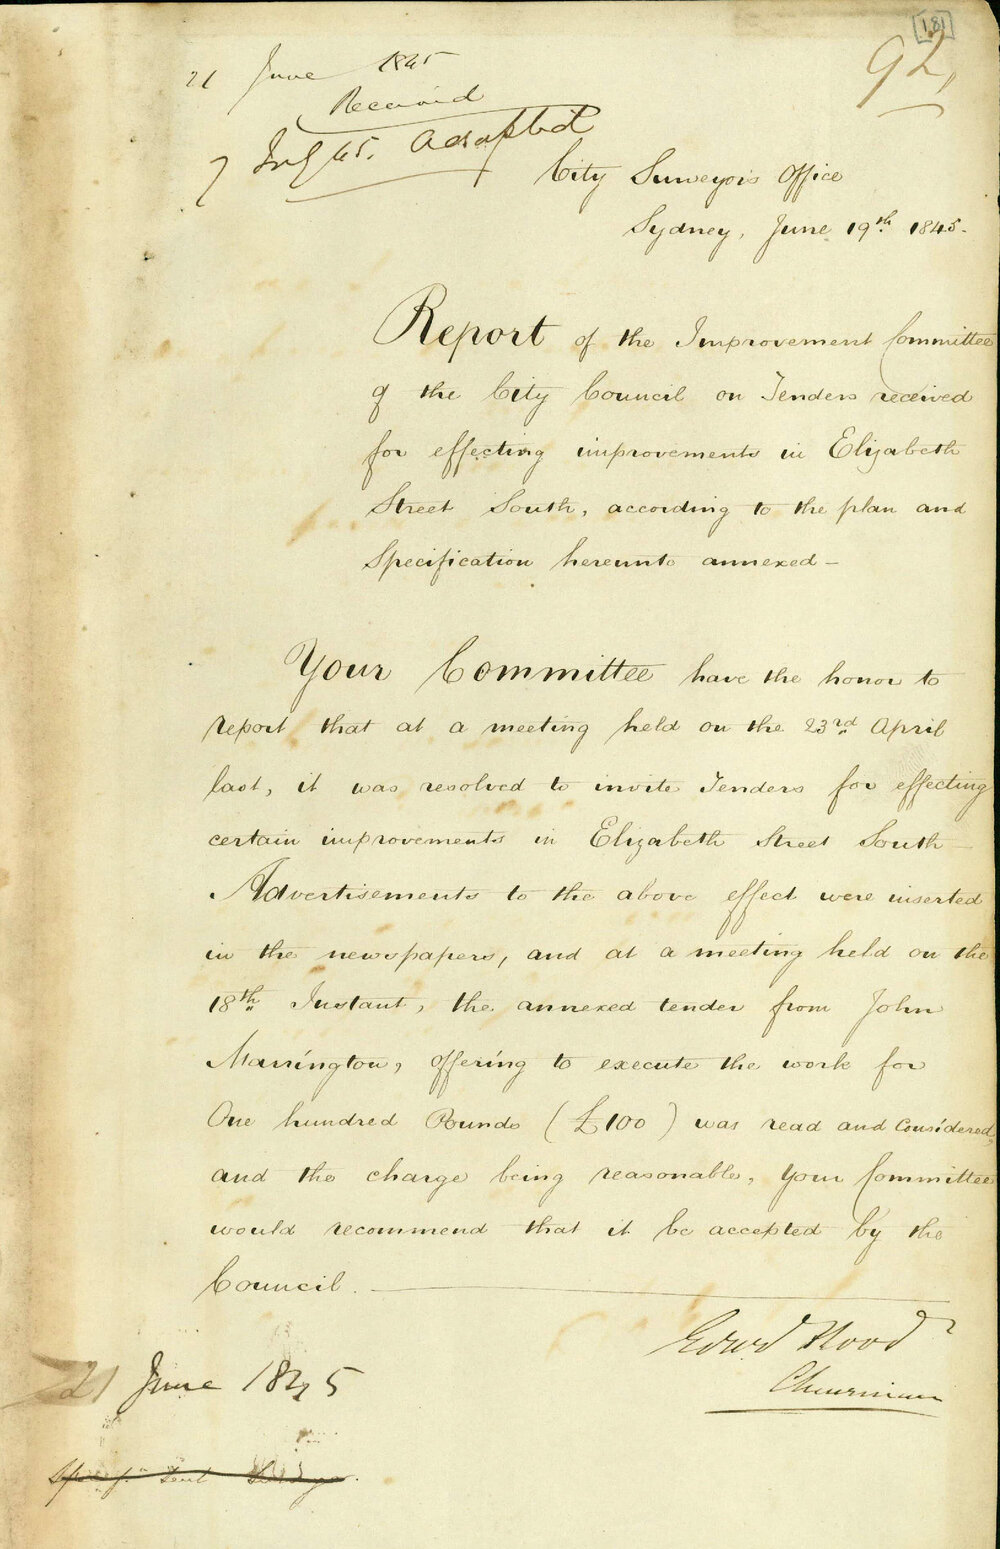 [181]
92,
21 June 1845
Received
7 July 45. Adopted
City Surveyors Office
Sydney, June 19th 1845.
Report of the Improvement Committee
of the City Council on Tenders received
for effecting improvements in Elizabeth
Street South, according to the plan and
Specification hereunto annexed –
Your Committee have the honor to
report that at a meeting held on the 23rd April
last, it was resolved to invite Tenders for effecting
certain improvements in Elizabeth Street South –
Advertisements to the above effect were inserted
in the newspapers, and at a meeting held on the
18th Instant, the annexed tender from John
Marrington, offering to execute the work for
One hundred Pounds (£100) was read and Considered,
and the charge being reasonable, Your Committee
would recommend that it be accepted by the
Council.
Edward Flood
Chairman
21 June 1845